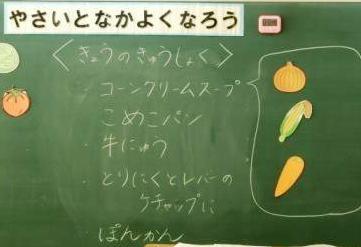 やさいとなかよくなろう
＜きょうのきゅうしょく＞
・コーンクリームスープ
・こめこパン
・牛にゅう
・とりにくとレバーの
ケチャップに
・ぽんかん